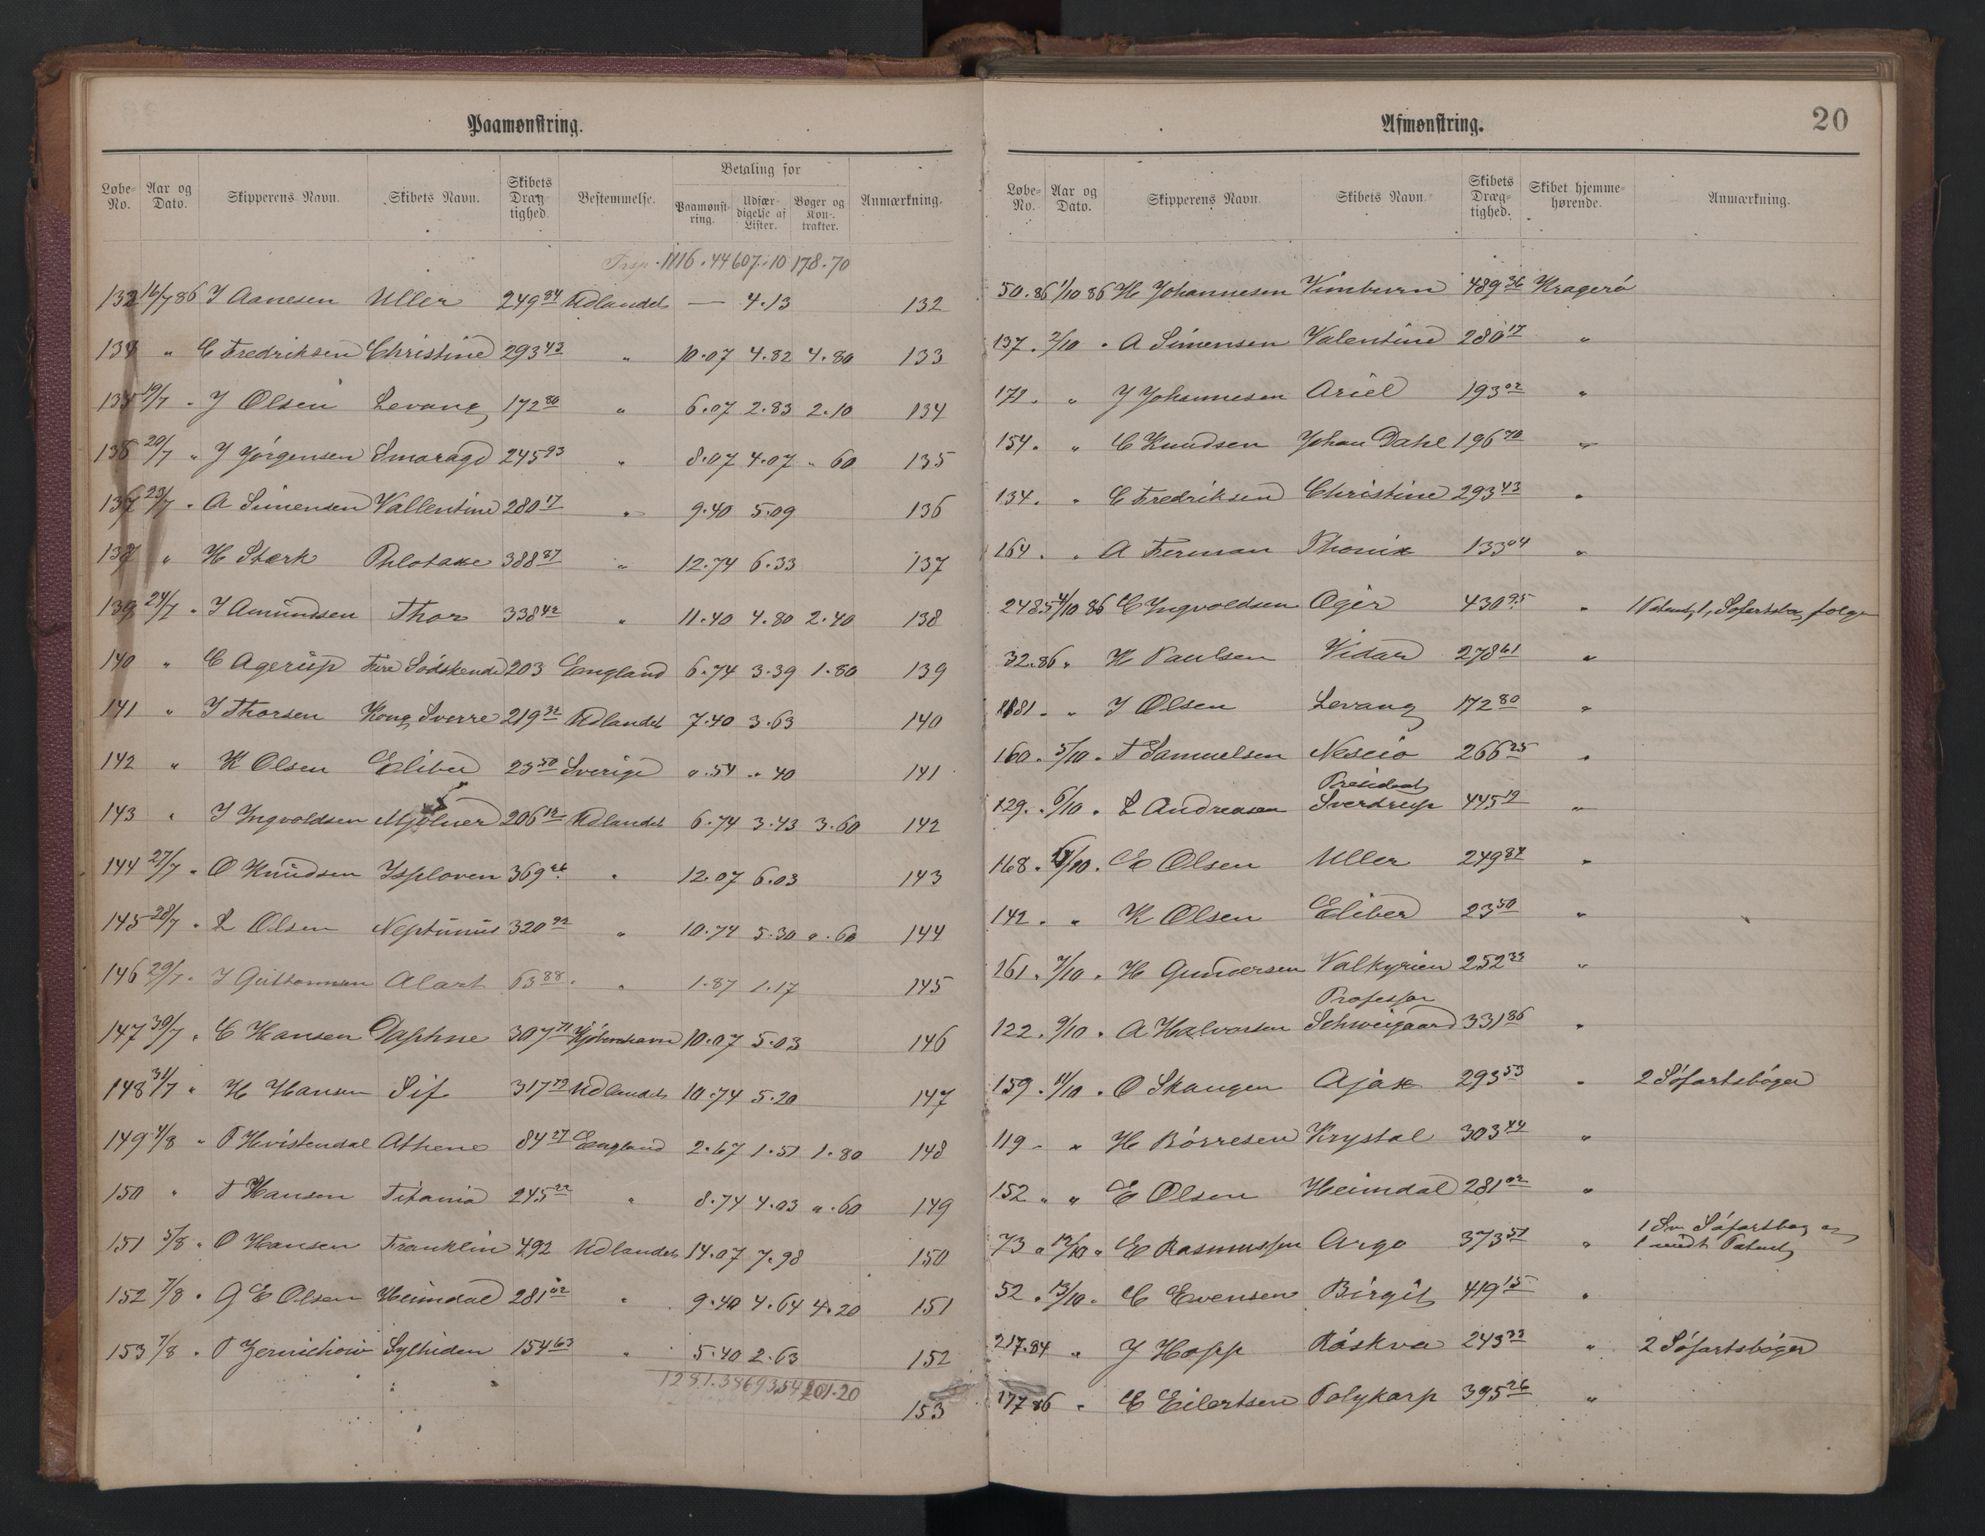 Paamønstring.
Løbe-No. Aar og Dato. Skipperens Navn. Skibets Navn. Skibets Dræg-tighed. Bestemmelse. Betaling for Paamønst-ring. Udfær-digelse af Lister. Bøger og Kon-trakter. Anmærkning.
1116.44 607.10 178.70
132 16/7 86 J Aanesen Uller 249 84 Udlandet — 4.13 132
134 " C Fredriksen Christine 293 43 " 10.07 4.82 4.80 133
135 19/7 " J Olsen Levang 172 80 " 6.07 2.83 2.10 134
136 20/7 " J Jørgensen Smaragd 245 93 " 8.07 4.07 " 60 135
137 23/7 " A Simensen Vallentine 280 17 " 9.40 5.09 136
138 " H Stærk 388 87 " 12.74 6.33 137
139 24/7 " J Amundsen Thor 338 42 " 11.40 4.80 2.40 138
140 " C Agerup Fire Södskende 203 England 6.74 3.39 1.80 139
141 " J Thorsen Kong Sverre 219 32 Udlandet 7.40 3.63 140
142 " K Olsen Elibed 23 50 Sverige " .54 " 40 141
143 " J Ingvoldsen Mjölner 206 12 Udlandet 6.74 3.43 3.60 142
144 27/7 " O Knudsen Isploven 369 26 " 12.07 6.03 143
145 28/7 " L Olsen Neptunus 320 92 " 10.74 5.30 " .60 144
146 29/7 " J Guttormsen Alart 63 88 " 1.87 1.17 145
147 30/7 " C Hansen Daphne 307 71 Kjöbenhavn 10.07 5.03 146
148 31/7 " H Hansen Sif 317 72 Udlandet 10.74 5.20 147
149 4/8 " P Hvistendal Athene 84 27 England 2.67 1.51 1.80 148
150 " T Hansen Titania 245 22 " 8.74 4.03 " .60 149
151 5/8 " O Hansen Franklin 492 Udlandet 14.07 7.98 150
152 7/8 " G E Olsen Heimdal 281 02 " 9.40 4.64 4.20 151
153 7/8 " P Jernichow Sylhiden 154 63 " 5.40 2.63 152
1281.38 693.54 201.20
153
Afmønstring.
20
Løbe-No. Aar og Dato. Skipperens Navn Skibets Navn Skibets Dræg-tighed. Skibet hjemme-hørende. Anmærkning.
50.86 1/10 86 H Johannesen Vimburn 489 36 Kragerö
137 " 2/10 " A Simensen Valentine 280 17 "
171 " " J Johannesen Ariel 193 02 "
154 " " C Knudsen Johan Dahl 196 70 "
134 " " C Fredriksen Christine 293 43 "
164 " " A Ferman Phonix 133 04 "
248.85 4/10 86 C Ingvoldsen Ægir 430 95 " 1 Patent, 1 Söfartsbog folger
32.86 " H Paulsen Vidar 278 61 "
181 " " J Olsen Levang 172 80 "
160 " 5/10 " T Samuelsen Nescio 266 25 "
129 " 6/10 " L Andreasen President Sverdrup 445 12 "
168 " /10 " E Olsen Uller 249 84 "
142 " " K Olsen Elibed 23 50 "
161 " 7/10 " H Gundersen Valkyrien 252 33 "
122 " 9/10 " A Halvorsen Professor Schweigaard 331 86 "
159 " 11/10 " O Skaugen Ajax 293 53 " 2 Söfartsböger
119 " " H Börresen Krystal 303 44 "
152 " " E Olsen Heimdal 281 02 "
73 " 12/10 " E Rasmussen Argo 373 51 " 1 Sv. Söfartsbog og 1 midt. Patent
52 " 13/10 " C Evensen Birgit 419 15 "
217.84 " J Hopp Röskva 243 33 " 2 Söfartsböger
177.86 " E Eilertsen Polykarp 395 26 "